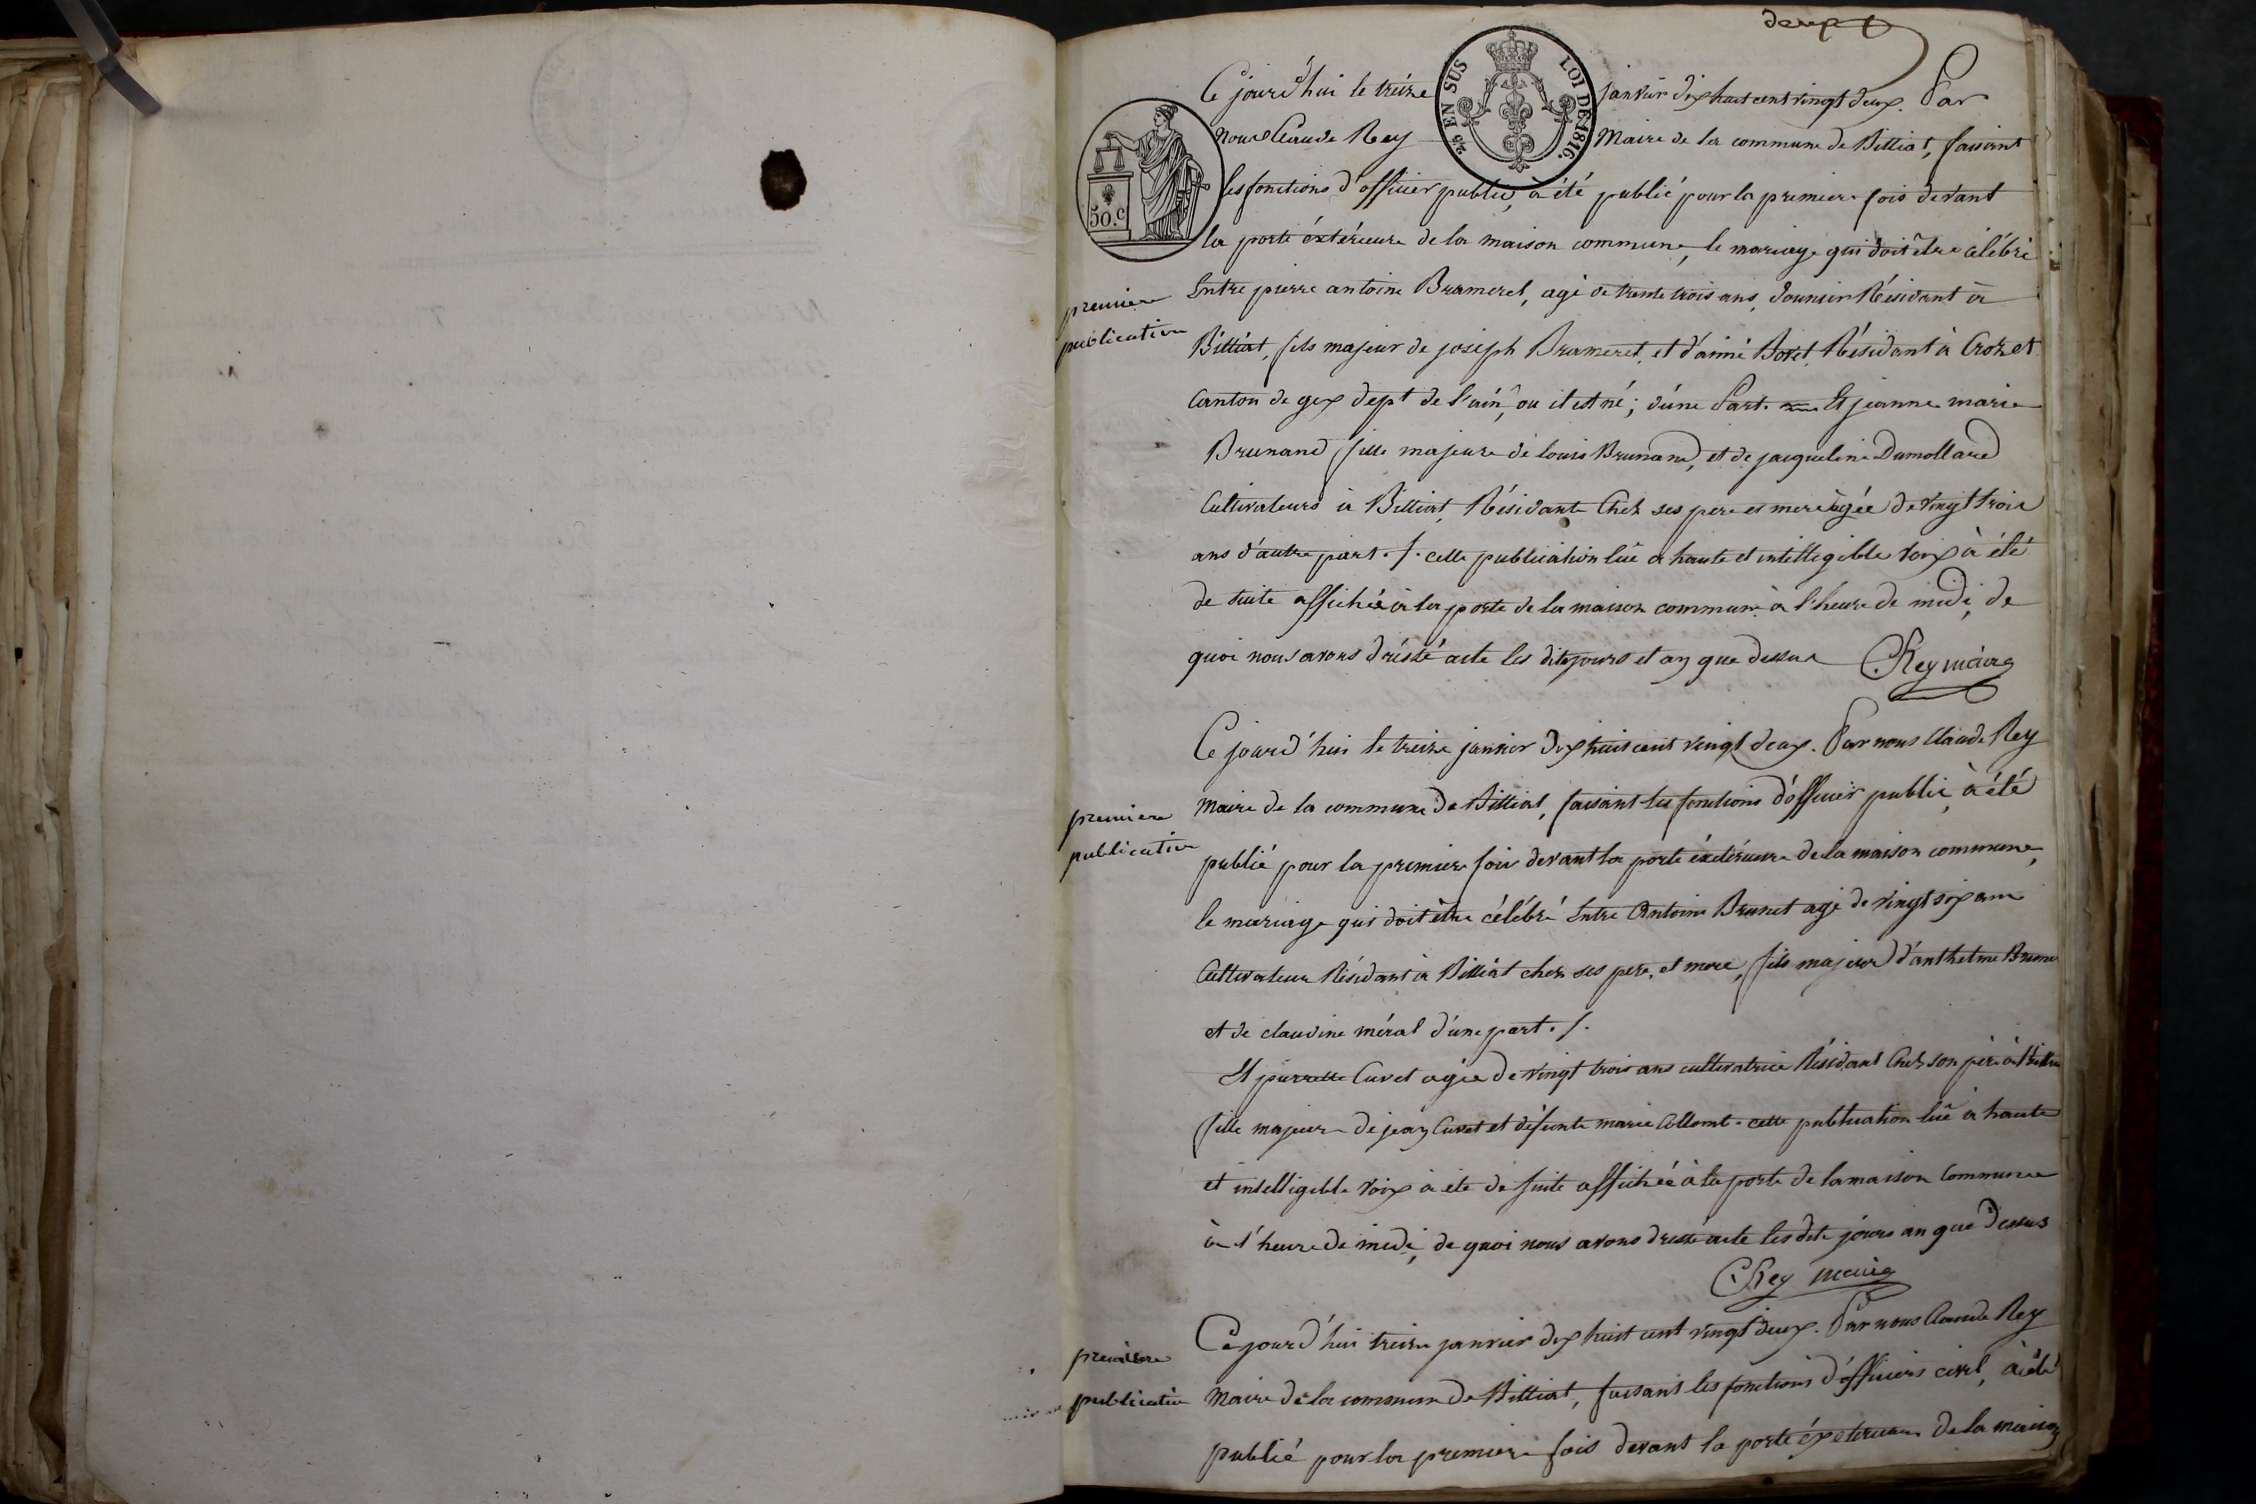 deux
Ce jourd'hui le treize janvier dix huit cent vingt deux. Par
25 EN SUS LOI DE 1816.
nous Claude Rey Maire de la commune de Billiat, faisant
50.c
les fonctions d'officier public, à été publié pour la premiere fois devant
la porte éxtérieure de la maison commune, le mariage qui doit être célébré
première
publication
Entre pierre antoine Brameret, agé de trente trois ans, Résidant à
Billiat, fils majeur de joseph Brameret, et d'aimé Bovet Résidant à Crozet
Canton de gex dept de l'ain, ou il est né; d'une Part. Et jeanne marie
Brunand fille majeure de louis Brunand, et de jacqueline Dumollard
Cultivateurs à Billiat, Résidante Chez ses pere et mere agée de vingt trois
ans d'autre part ./. cette publication luë a haute et intelligible voix à été
de suite affichée à la porte de la maison commune à l'heure de midi, de
quoi nous avons dréssé acte les dits jours et an que dessus CRey maire
Ce jourd'hui le treize janvier dix huit cent vingt deux. Par nous Claude Rey
première
publication
Maire de la commune de Billiat, faisant les fonctions d'officier public, à été
publié pour la premiere fois devant la porte éxtérieure de la maison commune,
le mariage qui doit être célébré Entre Antoine Brunet agé de vingt six ans
Cultivateur Résidant à Billiat chez ses pere, et mere, fils majeur d'anthelme
et de claudine méral d'une part ./.
Et pierrette Cuvet agée de vingt trois ans cultivatrice Résidant Chez son père à
fille majeure de jean Cuvet et défunte marie Collomb. cette publication luë à haute
et intelligible voix à été de suite affichée à la porte de la maison Commune
à l'heure de midi, de quoi nous avons dressé acte les dits jours an que dessus
CRey maire
Ce jourd'hui treize janvier dix huit cent vingt deux. Par nous Claude Rey
première
publication
Maire de la commune de Billiat, faisant les fonctions d'officiers civil, à été
publié pour la premiere fois devant la porte éxterieure de la maison